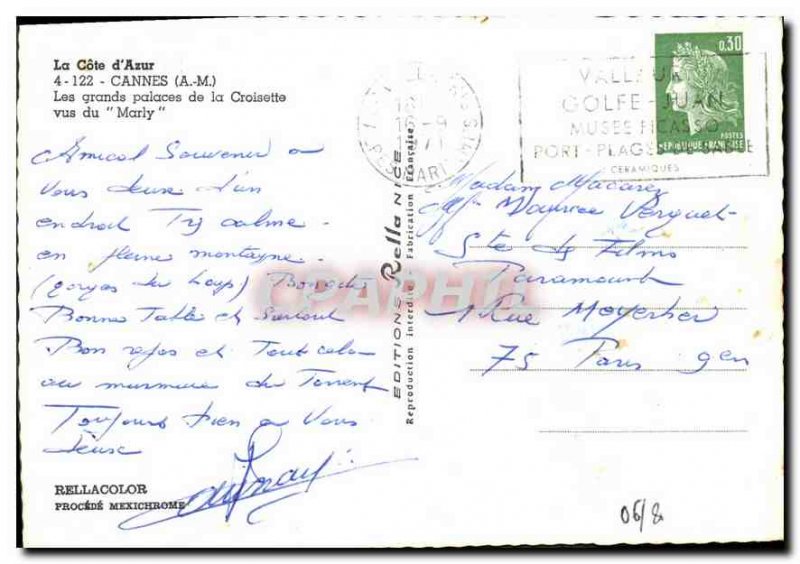 La Côte d'Azur
4-122 - CANNES (A.-M.)
Les grands palaces de la Croisette
vus du "Marly"
Amical Souvenir a
Vous deux d'un
endroit Très calme -
en pleine montagne -
(gorges du Loup)
Bonne Table et Surtout
Bon repos et Tout cela
au murmure du Torrent
Toujours bien a Vous
deux
RELLACOLOR
PROCÉDÉ MEXICHROME
EDITIONS Rella NICE
Reproduction interdite - Fabrication Française
0,30
POSTES
REPUBLIQUE FRANÇAISE
VALLAURIS
GOLFE-JUAN
MUSEE PICASSO
PORT - PLAGES DE SABLE
CERAMIQUES
Madame Macarez
Maurice Verquet
Sté des Films
Paramount
1 Rue Meyerber
75 Paris 9em
CPAPHIL
06/8